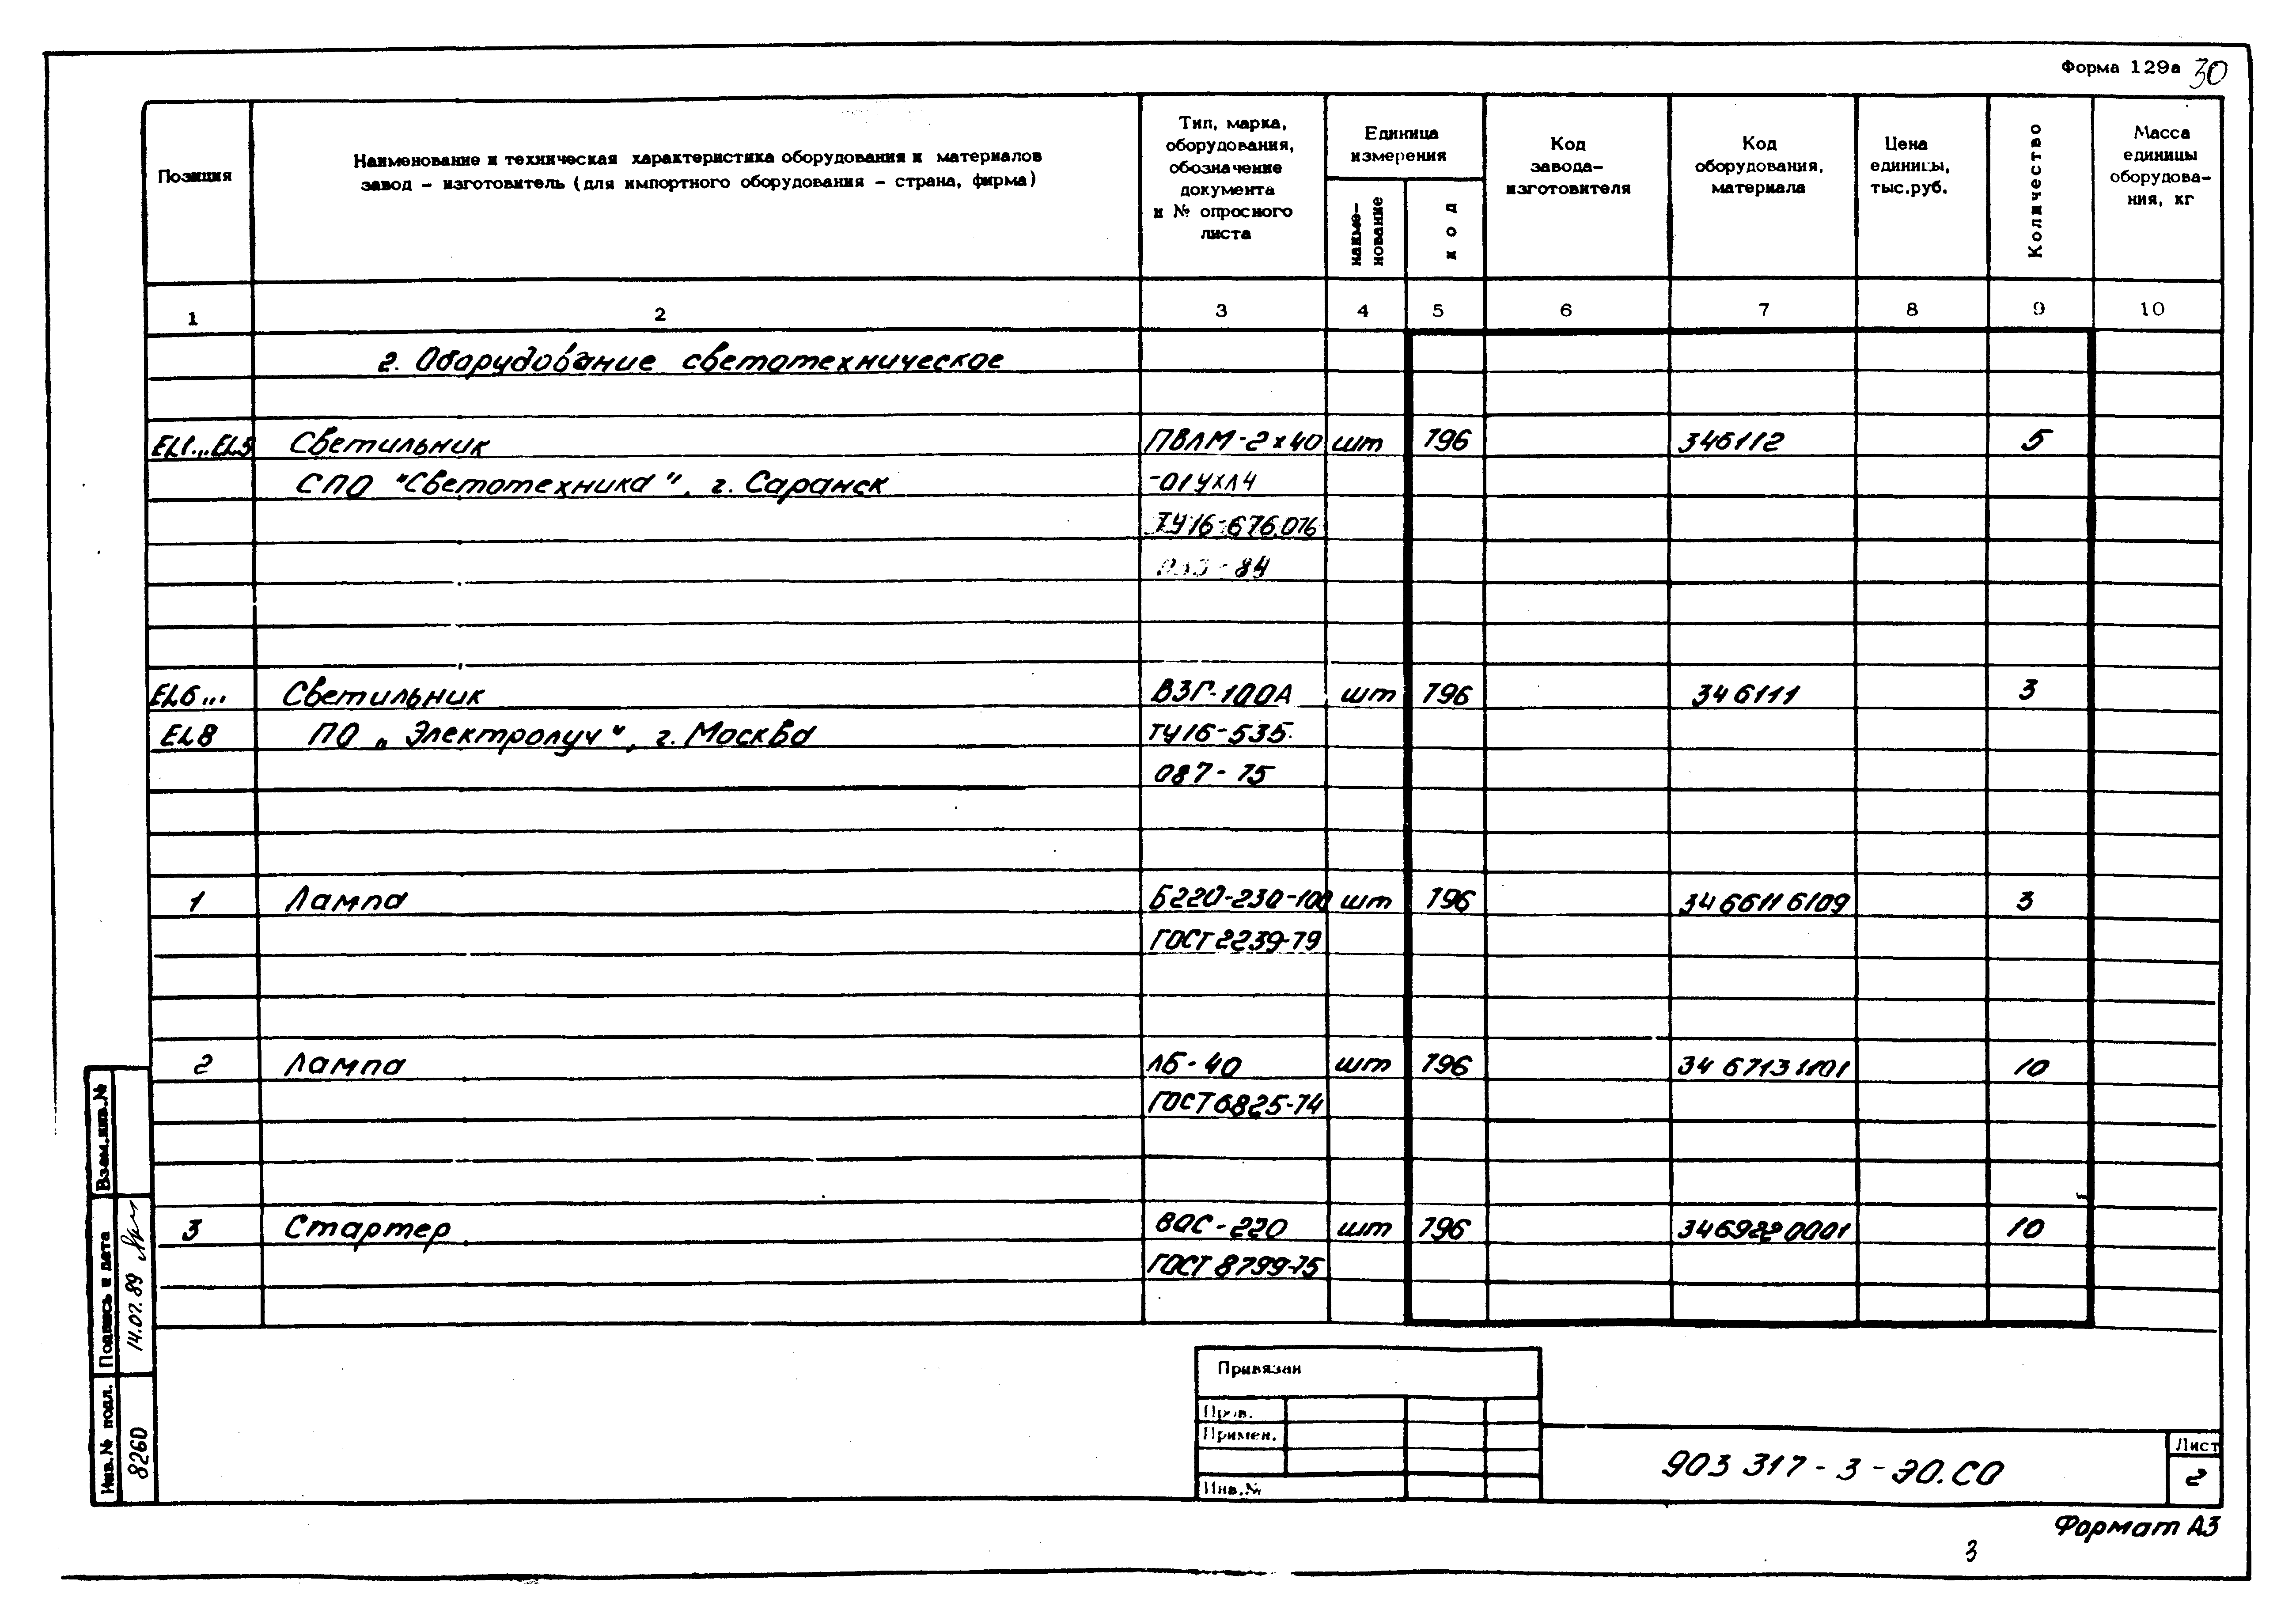 Форма 129а 30
Позиция
Наименование и техническая характеристика оборудования и материалов
завод – изготовитель (для импортного оборудования – страна, фирма)
Тип, марка,
оборудования,
обозначение
документа
и № опросного
листа
Единица
измерения
наиме-
нование
код
Код
завода-
изготовителя
Код
оборудования,
материала
Цена
единицы,
тыс.руб.
Количество
Масса
единицы
оборудова-
ния, кг
1 2 3 4 5 6 7 8 9 10
2. Оборудование светотехническое
EL1...EL5 Светильник ПВЛМ-2х40 шт 796 346112 5
СПО "Светотехника", г. Саранск -01УХЛ4
ТУ16-676.076
84
EL6... Светильник ВЗГ-100А шт 796 346111 3
EL8 ПО „Электролуч", г. Москва ТУ16-535.
087-75
1 Лампа Б220-230-100 шт 796 3466116109 3
ГОСТ 2239-79
2 Лампа ЛБ-40 шт 796 34 67131101 10
ГОСТ 6825-74
3 Стартер ВОС-220 шт 796 3469220001 10
ГОСТ 8799-75
Взам.инв.№
Подпись и дата
14.07.89
Инв.№ подл.
8260
Привязан
Пров.
Примен.
Инв.№
903 317-3-ЭО.СО
Лист
2
Формат А3
3